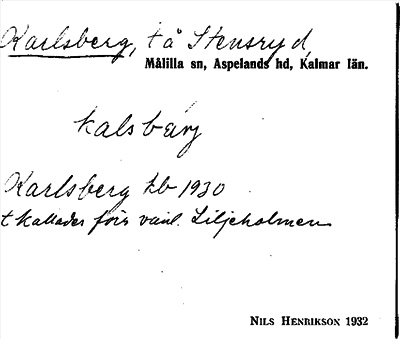 Karlsberg, t å Stensryd,
Målilla sn, Aspelands hd, Kalmar län.
kalsbärg
Karlsberg kb 1930
t kallades förr vanl. Liljeholmen
NILS HENRIKSON 1932